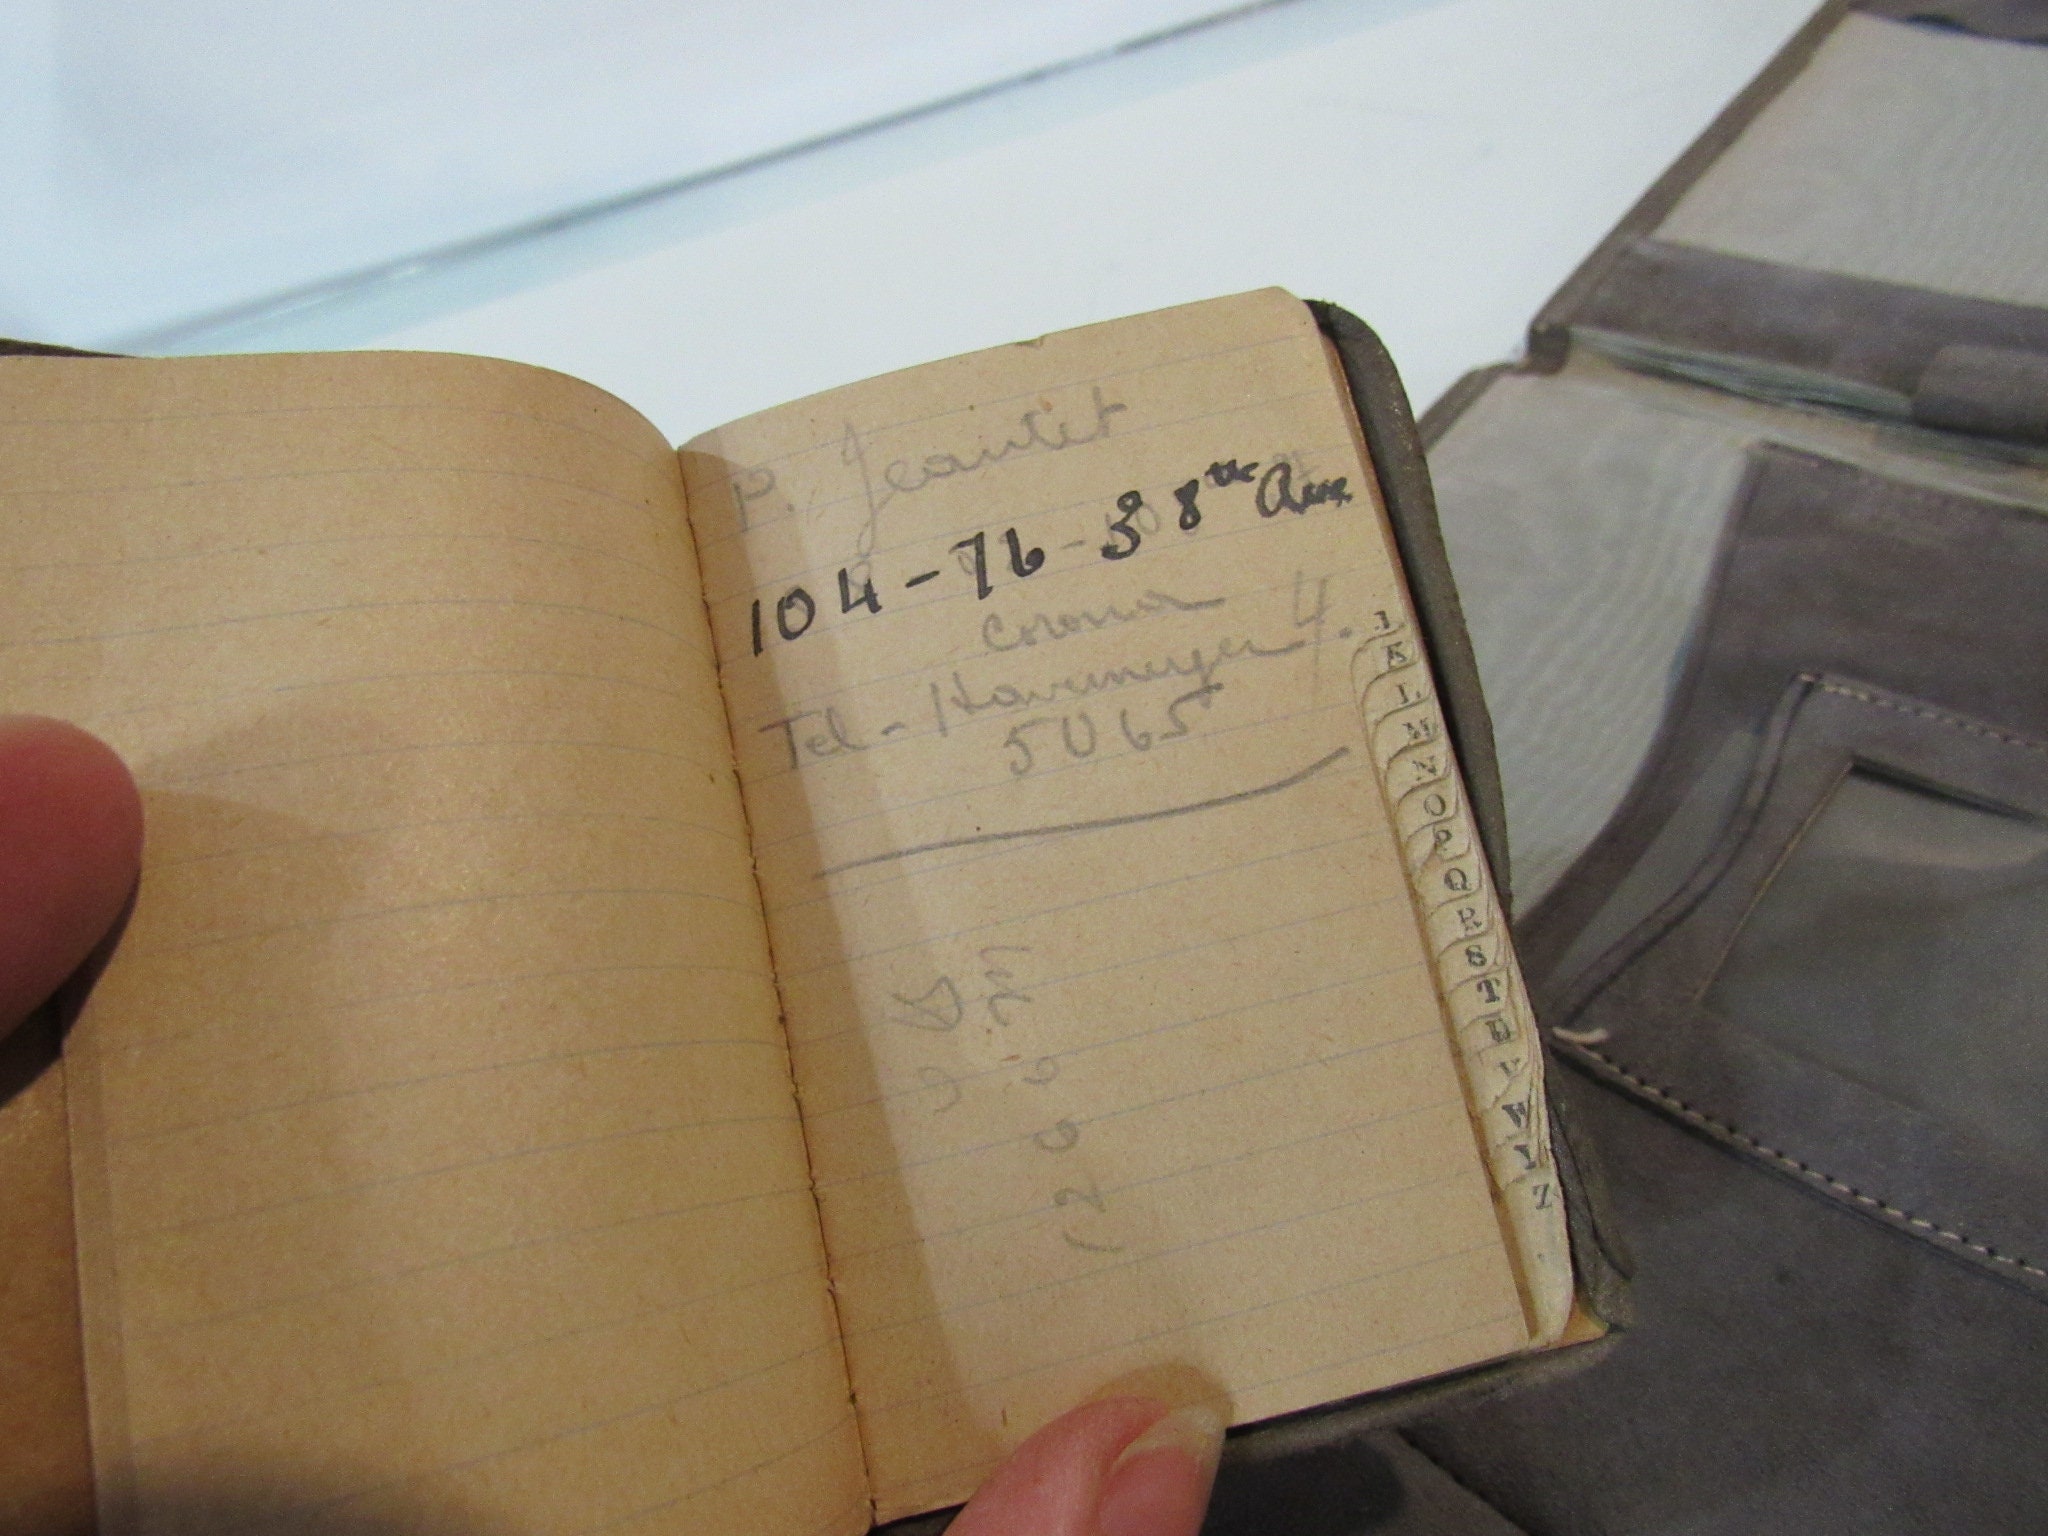 P. Jeantet
104-76-38th Ave.
Corona
Tel - Havemeyer 4.
5065
J
K
L
M
N
O
P
Q
R
S
T
U
V
W
Y
Z